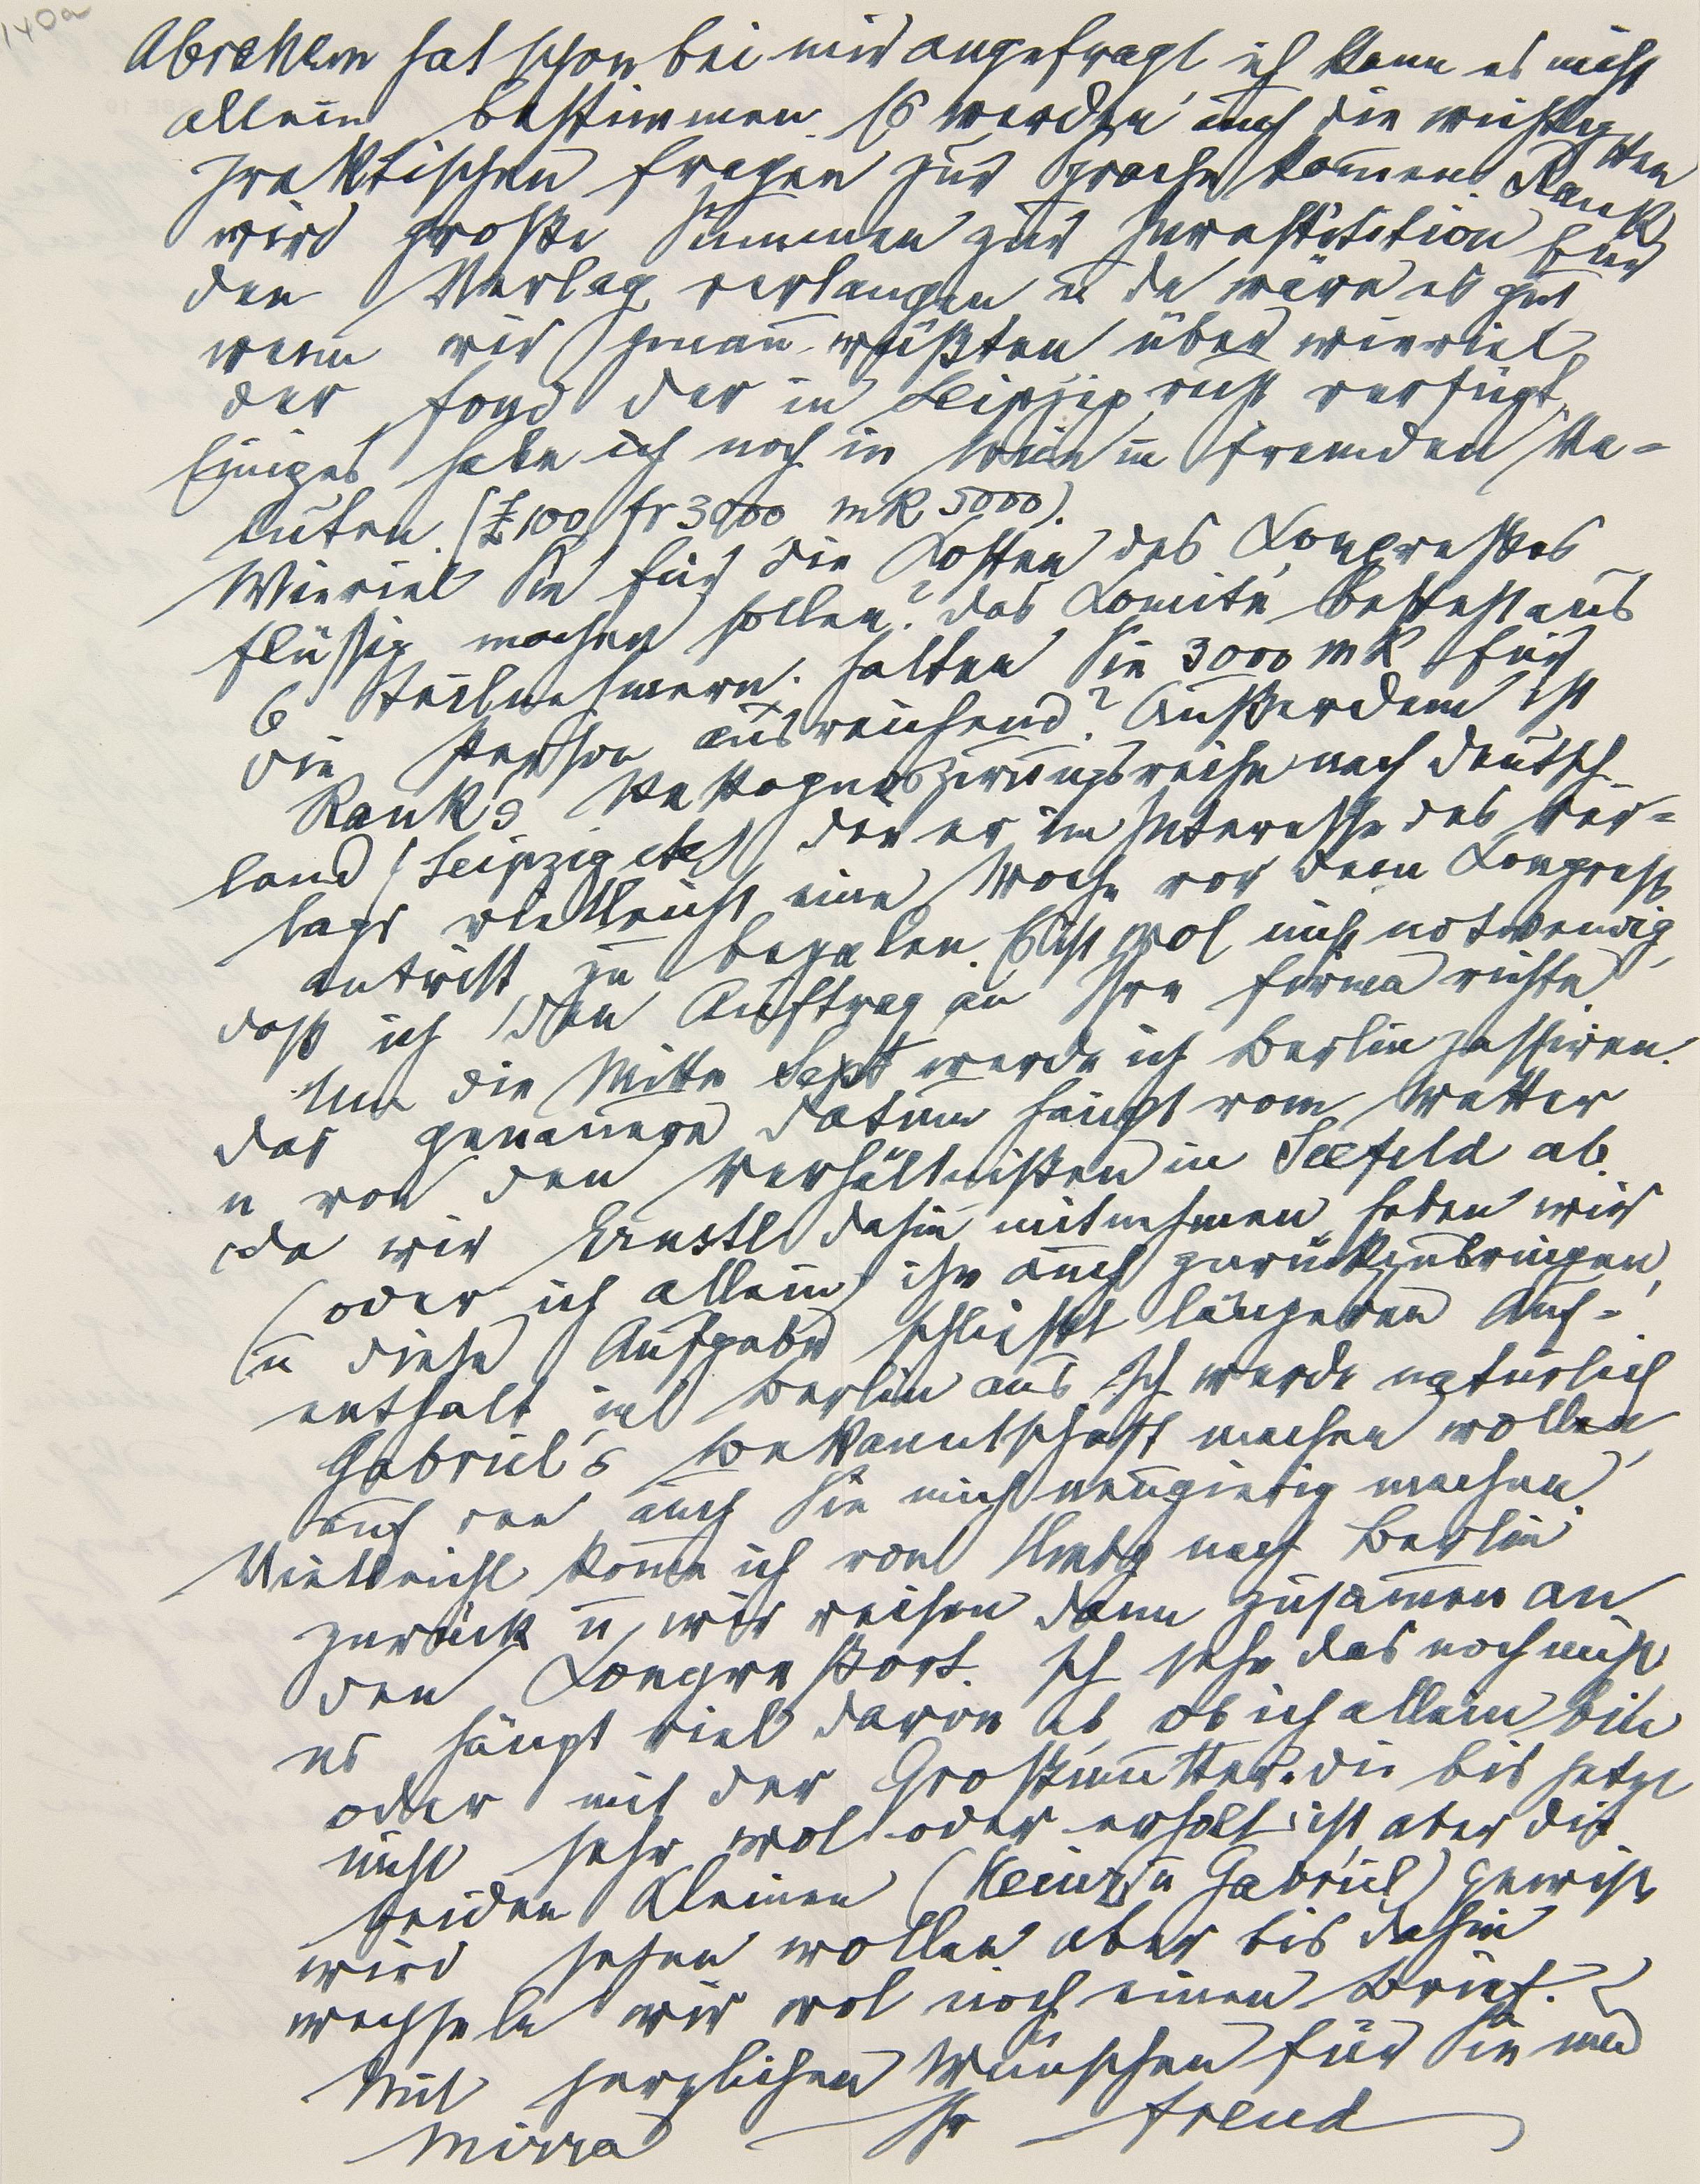 140a
Abraham hat schon bei mir angefragt ich kann es nicht
allein bestimmen. Es werden auch die wichtigsten
praktischen Fragen zur Sprache kommen. Rank
wird große Summen zur Investition für
den Verlag verlangen u da wäre es gut
wenn wir genau wüßten über wieviel
der Fond der in Leipzig ruht verfügt.
Einiges habe ich noch in Wien in fremden Va-
luten. (£ 100, fr 3000 mk 5000).
Wieviel Sie für die Kosten des Kongreßes
flüssig machen sollen? Das Komité besteht aus
6 Teilnehmern. Halten Sie 3000 mk für
die Person ausreichend? Außerdem ist
Rank's Rekognoszirungsreise nach Deutsch-
land (Leipzig etc) den er im Interesse des Ver-
lags vielleicht eine Woche vor dem Kongreß
antritt zu bezalen. Es ist wol nicht notwendig,
daß ich den Auftrag an Ihre Firma richte.
Um die Mitte Sept werde ich Berlin passiren.
Das genauere Datum hängt vom Wetter
u von den Verhältnißen in Seefeld ab.
Da wir Ernstl dahin mitnehmen haben wir
(oder ich allein) ihn auch zurückzubringen,
u diese Aufgabe schließt längeren Auf-
enthalt in Berlin aus. Ich werde natürlich
Gabriel's Bekanntschaft machen wollen,
auf den auch Sie mich neugierig machen.
Vielleicht komme ich von Hmbg nach Berlin
zurück u wir reisen dann zusammen an
den Kongreßort. Ich sehe das noch nicht
es hängt viel davon ab, ob ich allein bin
oder mit der Großmutter. die bis jetzt
nicht sehr wol oder erholt ist, aber die
beiden Kleinen (Heinz u Gabriel) gewiß
wird sehen wollen aber bis dahin
wechseln wir wol noch einen Brief.
Mit herzlichen Wünschen für Sie und
Mirra Ihr Freud